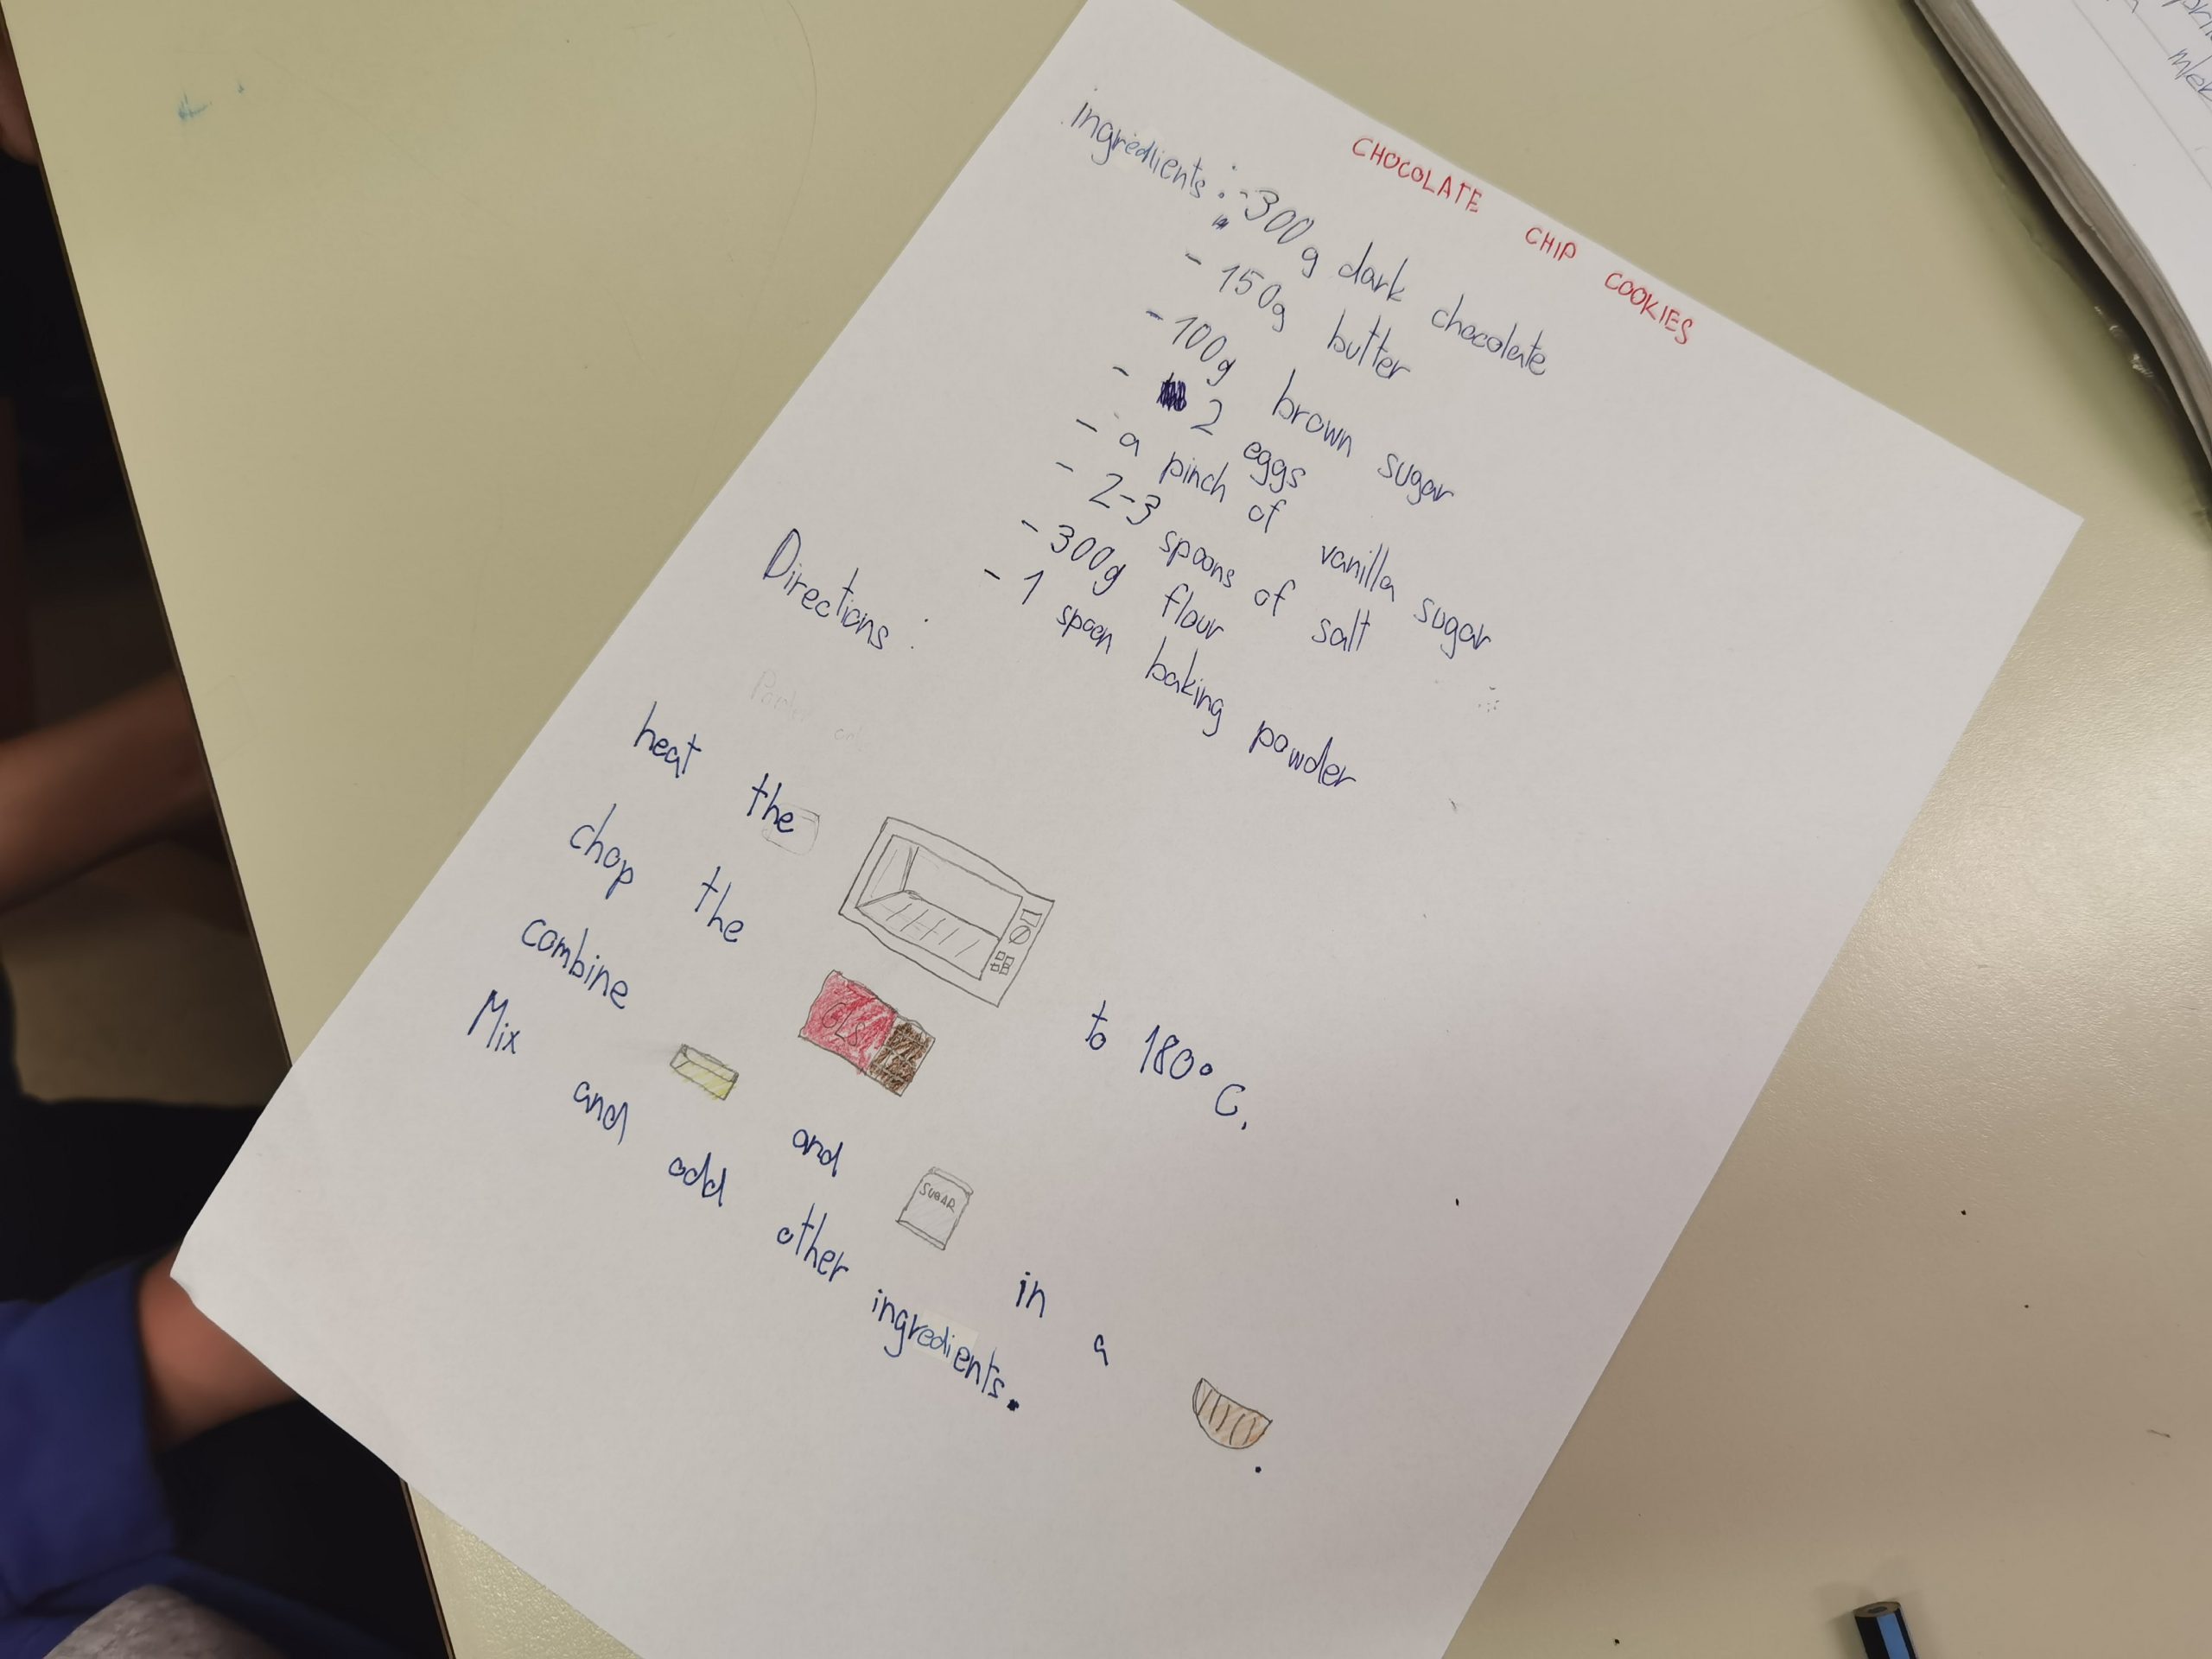 CHOCOLATE CHIP COOKIES
ingredients: -300g dark chocolate
- 150g butter
- 100g brown sugar
- 2 eggs
- a pinch of vanilla sugar
- 2-3 spoons of salt
- 300g flour
- 1 spoon baking powder
Directions:
heat the to 180°C.
chop the
combine and SUGAR in a .
Mix and add other ingredients.